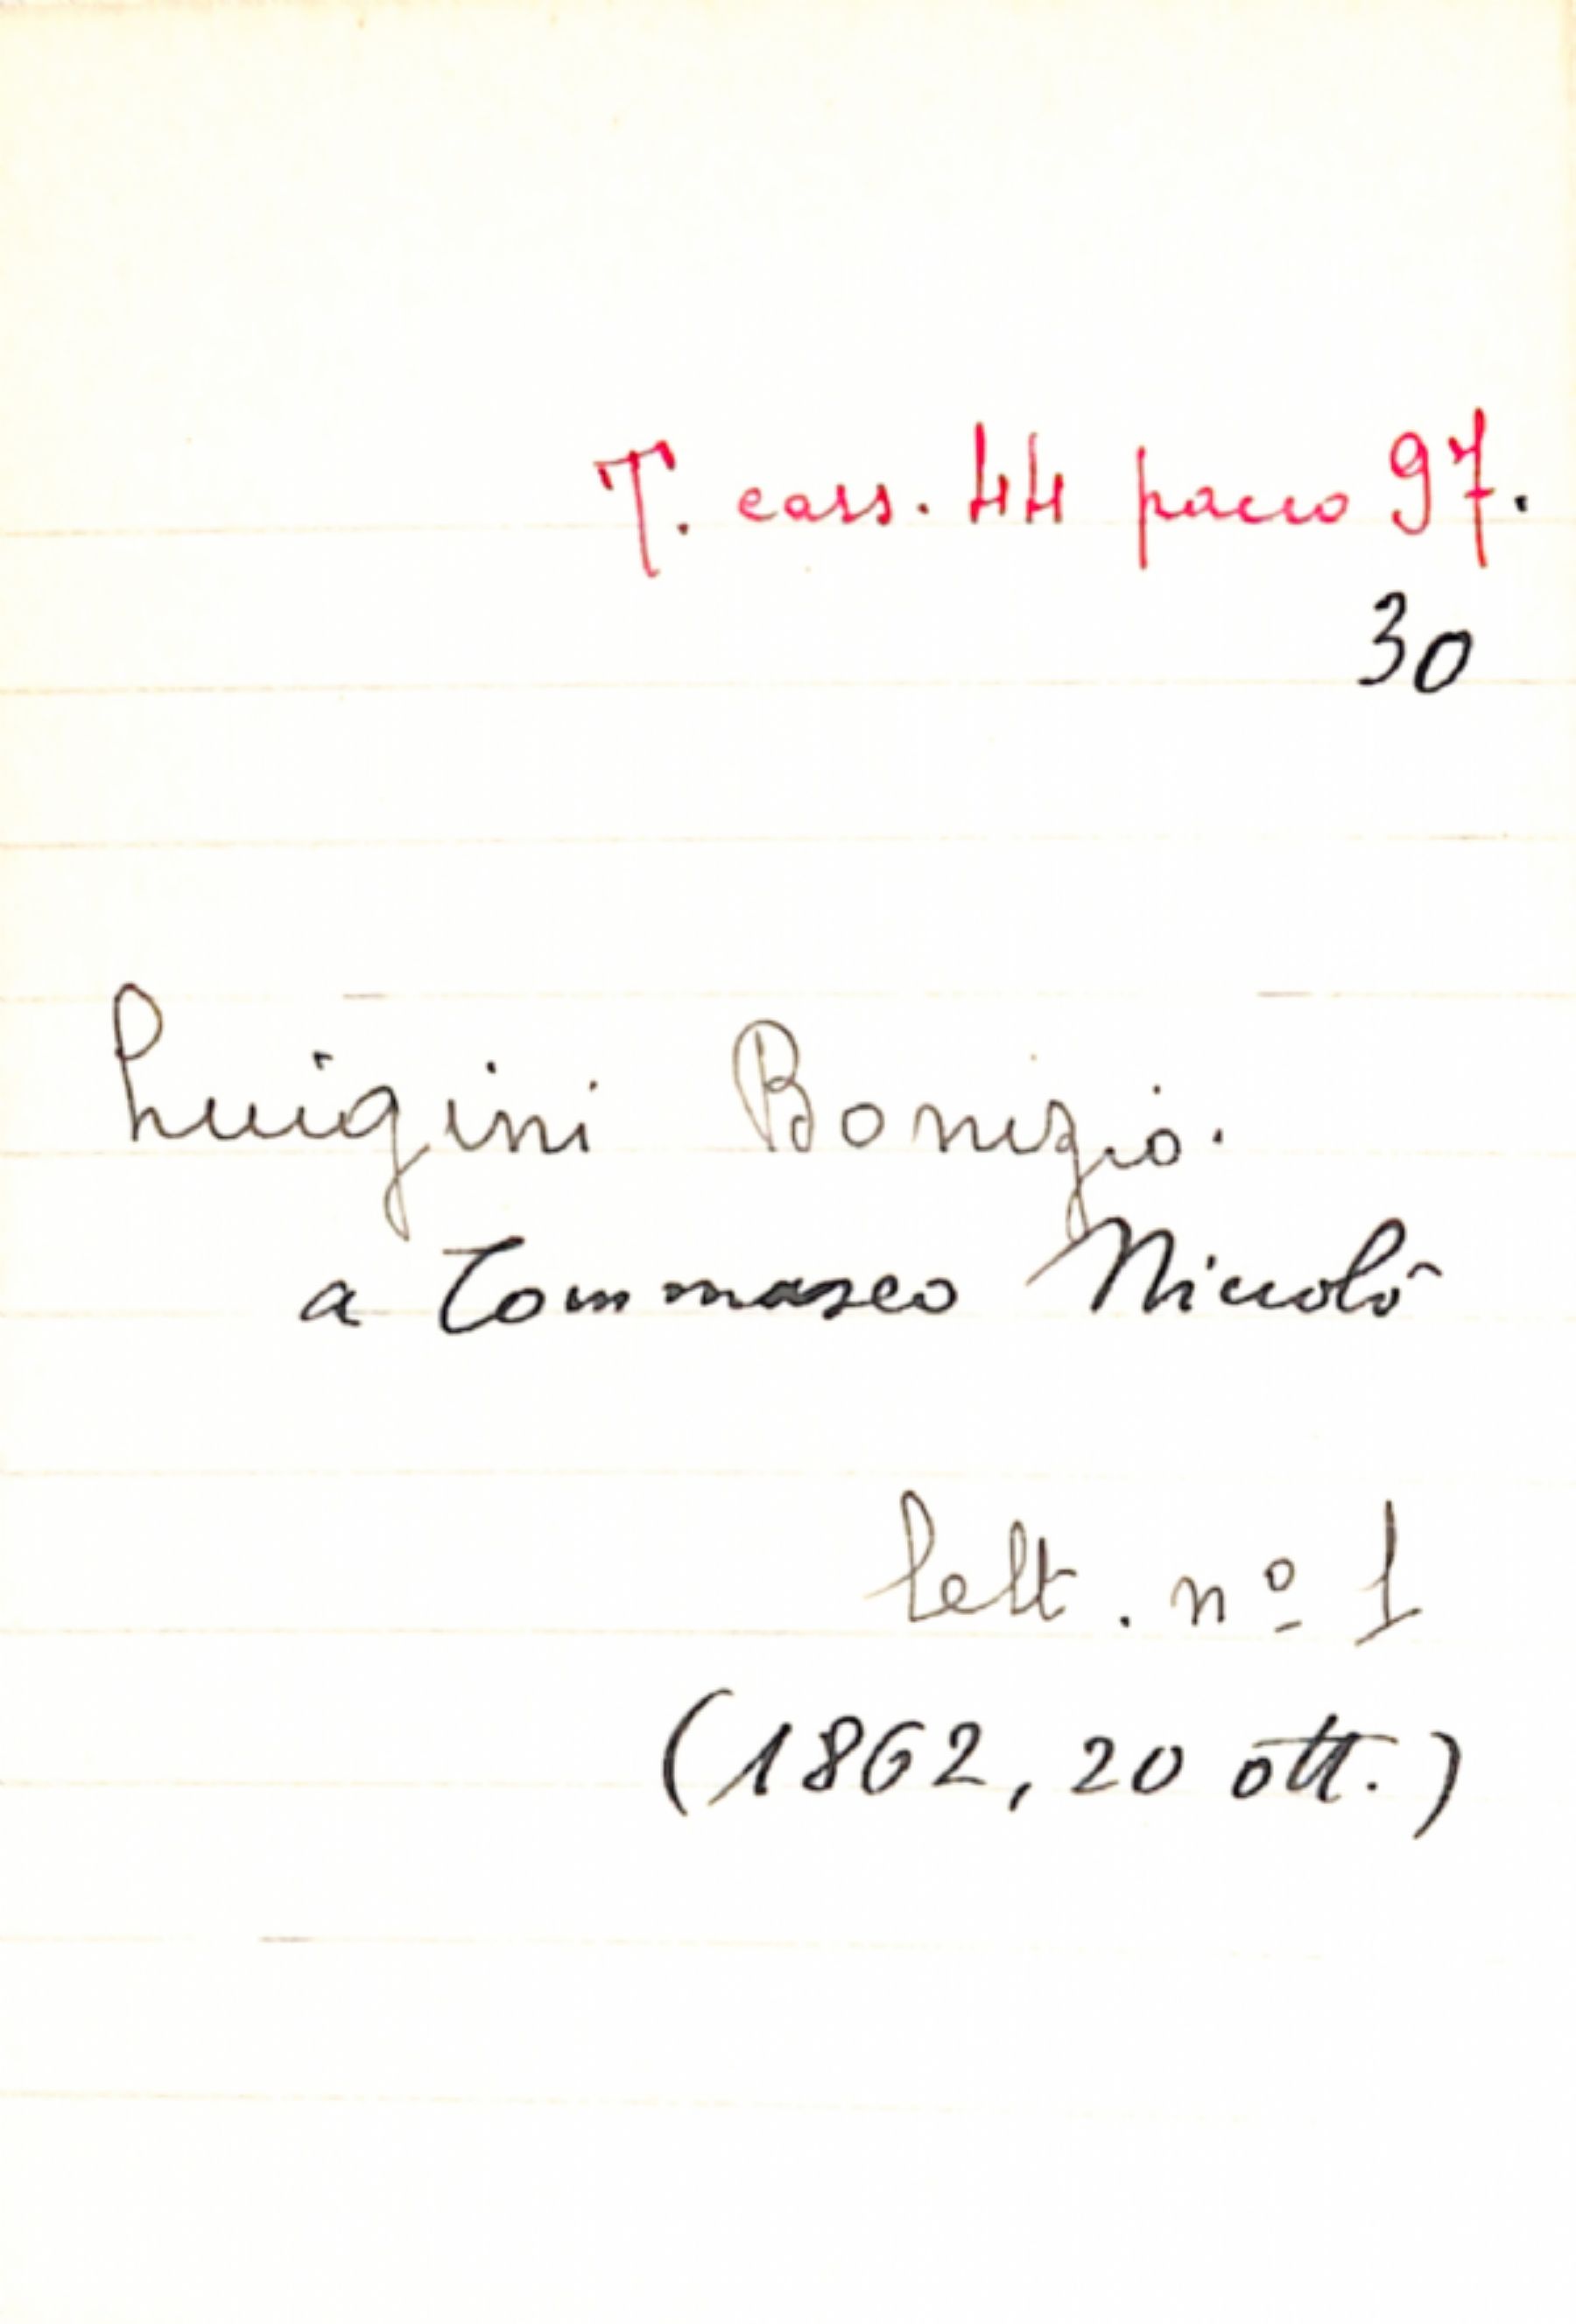 T. cass. 44 pacco 97.
30
Luigini Bonizio.
a Tommaseo Niccolò
lett. nº 1
(1862, 20 ott.)